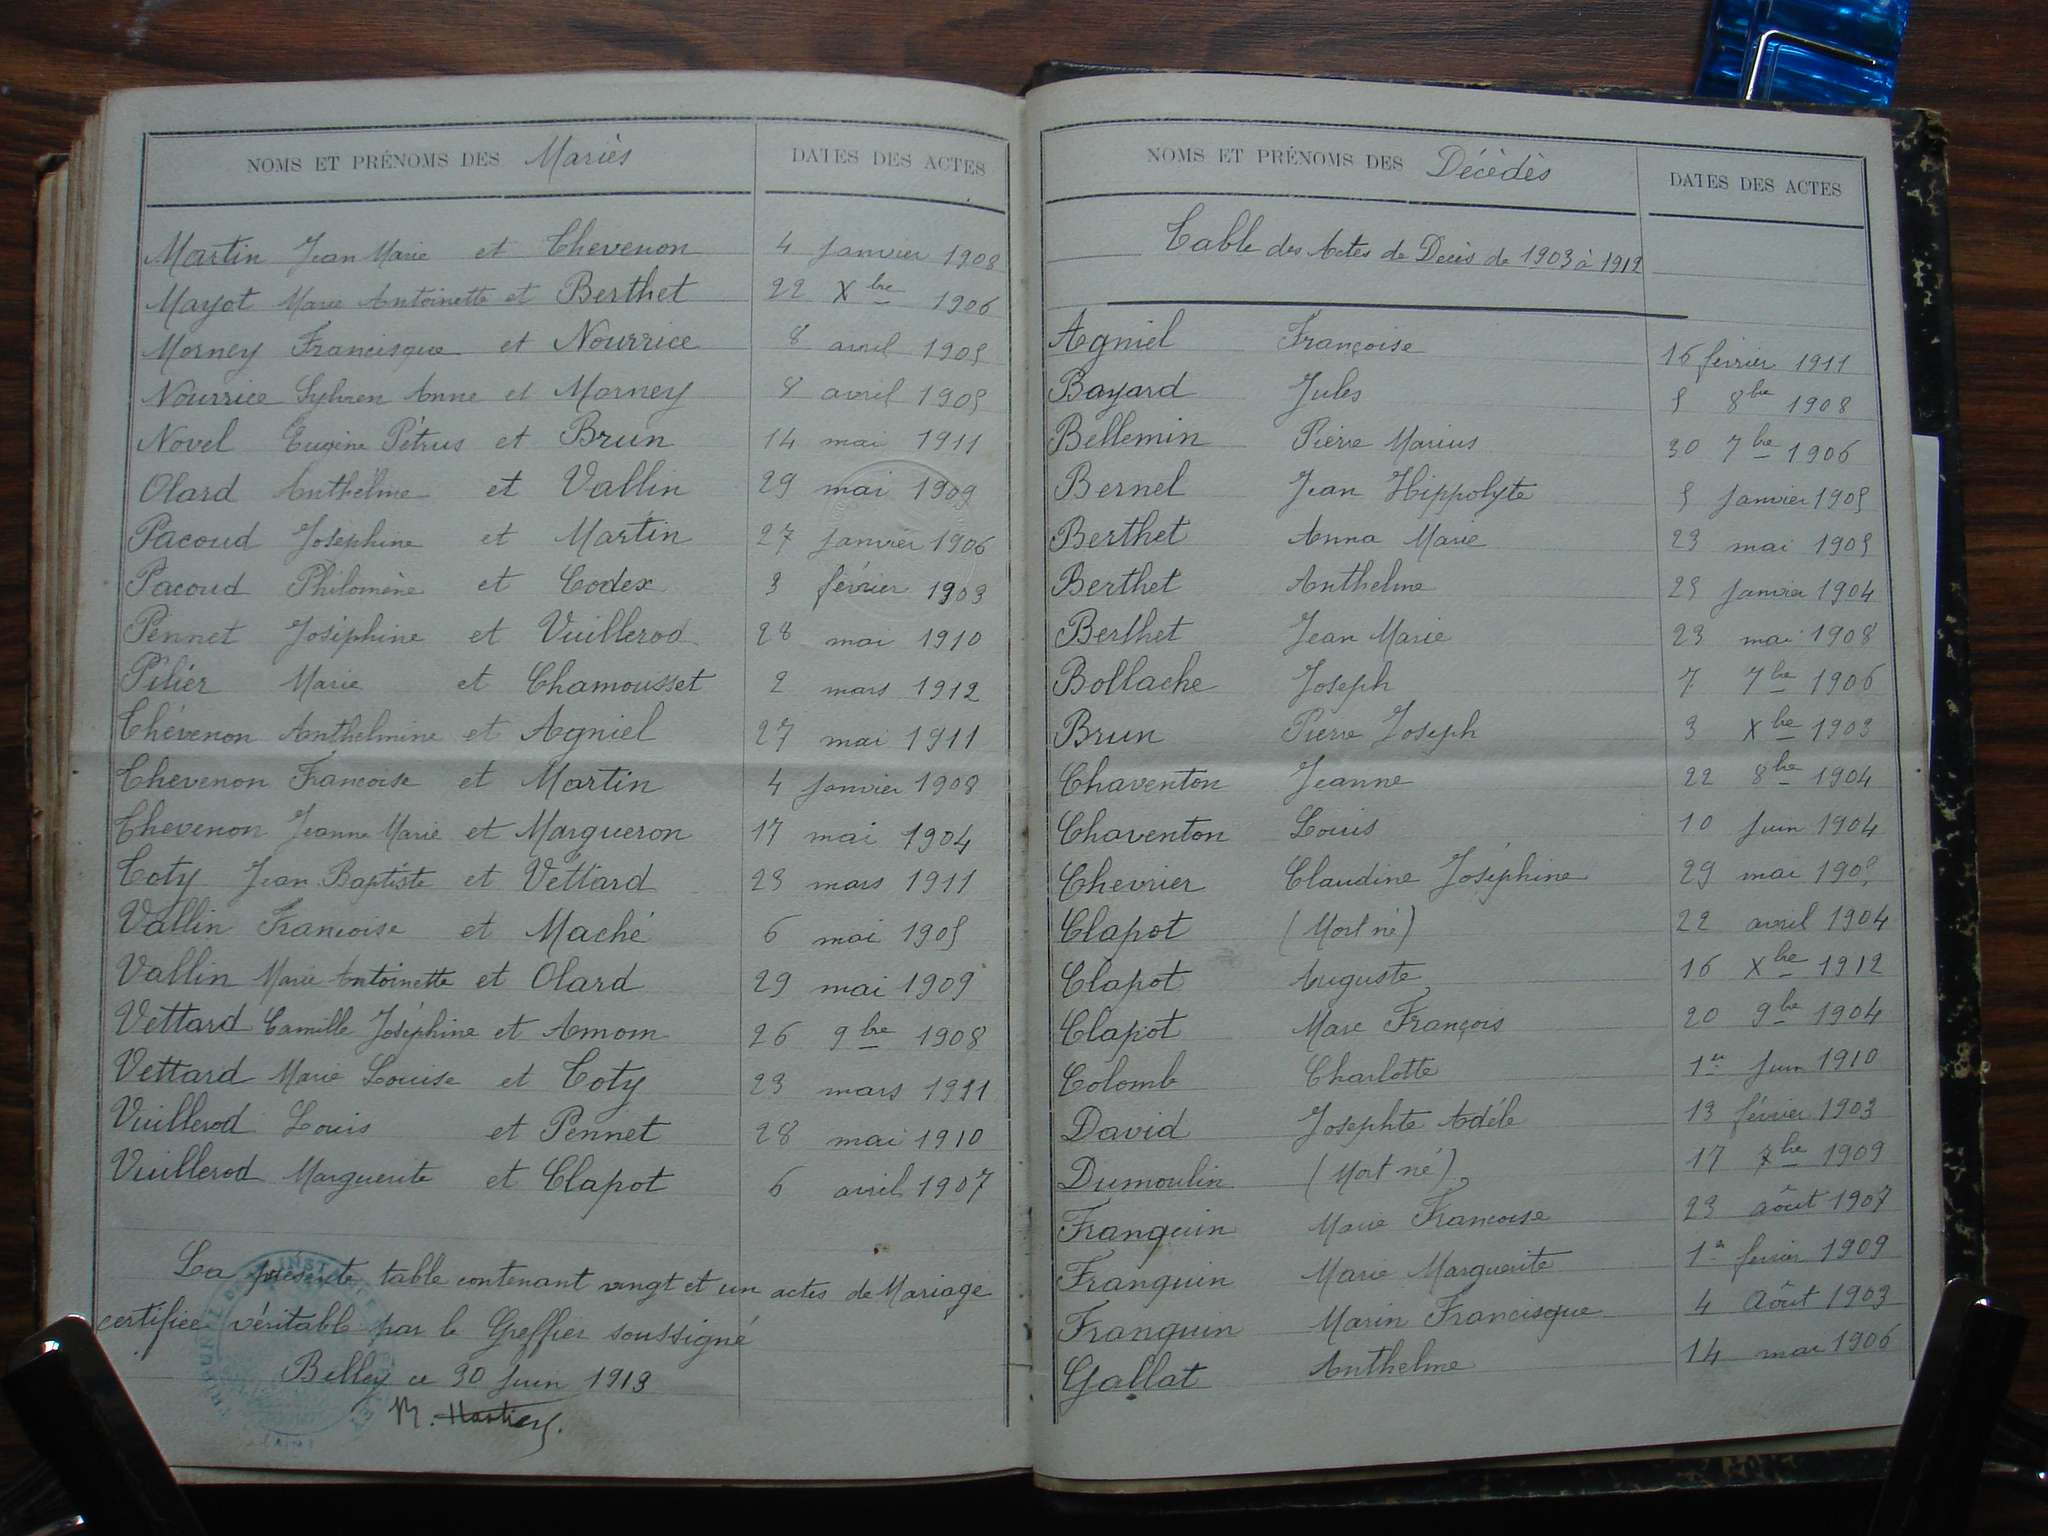 NOMS ET PRÉNOMS DES Mariés DATES DES ACTES
Martin Jean Marie et Thevenon 4 Janvier 1908
Mayot Marie Antoinette et Berthet 22 Xbre 1906
Morney Francisque et Nourrice 8 avril 1905
Nourrice Sylvren Anne et Morney 8 avril 1905
Novel Eugène Pétrus et Brun 14 mai 1911
Olard Anthelme et Vallin 29 mai 1909
Pacoud Joséphine et Martin 27 Janvier 1906
Pacoud Philomène et Codex 3 février 1903
Pennet Joséphine et Vuillerod 28 mai 1910
Pilier Marie et Chamousset 2 mars 1912
Thévenon Anthelmine et Agniel 27 mai 1911
Thevenon Françoise et Martin 4 Janvier 1908
Thevenon Jeanne Marie et Margueron 17 mai 1904
Toty Jean Baptiste et Vettard 23 mars 1911
Vallin Françoise et Maché 6 mai 1905
Vallin Marie Antoinette et Olard 29 mai 1909
Vettard Camille Joséphine et Amom 26 9bre 1908
Vettard Marie Louise et Toty 23 mars 1911
Vuillerod Louis et Pennet 28 mai 1910
Vuillerod Marguerite et Clapot 6 avril 1907
La présente table contenant vingt et un actes de Mariage
certifiée véritable par le Greffier soussigné
Belley ce 30 Juin 1913
NOMS ET PRÉNOMS DES Décédés DATES DES ACTES
Table des Actes de Décès de 1903 à 1912
Agniel Françoise 16 février 1911
Bayard Jules 5 8bre 1908
Bellemin Pierre Marius 30 7bre 1906
Bernel Jean Hippolyte 5 Janvier 1905
Berthet Anna Marie 23 mai 1905
Berthet Anthelme 25 Janvier 1904
Berthet Jean Marie 23 mai 1908
Bollache Joseph 7 7bre 1906
Brun Pierre Joseph 3 Xbre 1903
Chaventon Jeanne 22 8bre 1904
Chaventon Louis 10 Juin 1904
Chevrier Claudine Joséphine 29 mai 1905
Clapot (Mort né) 22 avril 1904
Clapot Auguste 16 Xbre 1912
Clapot Marc François 20 9bre 1904
Colomb Charlotte 1er Juin 1910
David Josephte Adéle 13 février 1903
Dumoulin (Mort né) 17 bre 1909
Franquin Marie Françoise 23 août 1907
Franquin Marie Marguerite 1er fevrier 1909
Franquin Marin Francisque 4 Août 1903
Gallat Anthelme 14 mai 1906